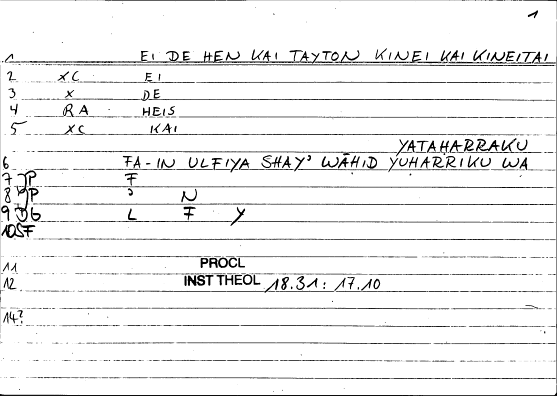 1
1 EI DE HEN KAI TAYTON KINEI KAI KINEITAI
2 XC EI
3 X DE
4 RA HEIS
5 XC KAI
YATAHARRAKU
6 FA-IN ULFIYA SHAY' WĀHID YUHARRIKU WA
7 JP F
8 JP ' N
9 JG L F Y
10 SF
11 PROCL
12 INST THEOL 18.31: 17.10
14?